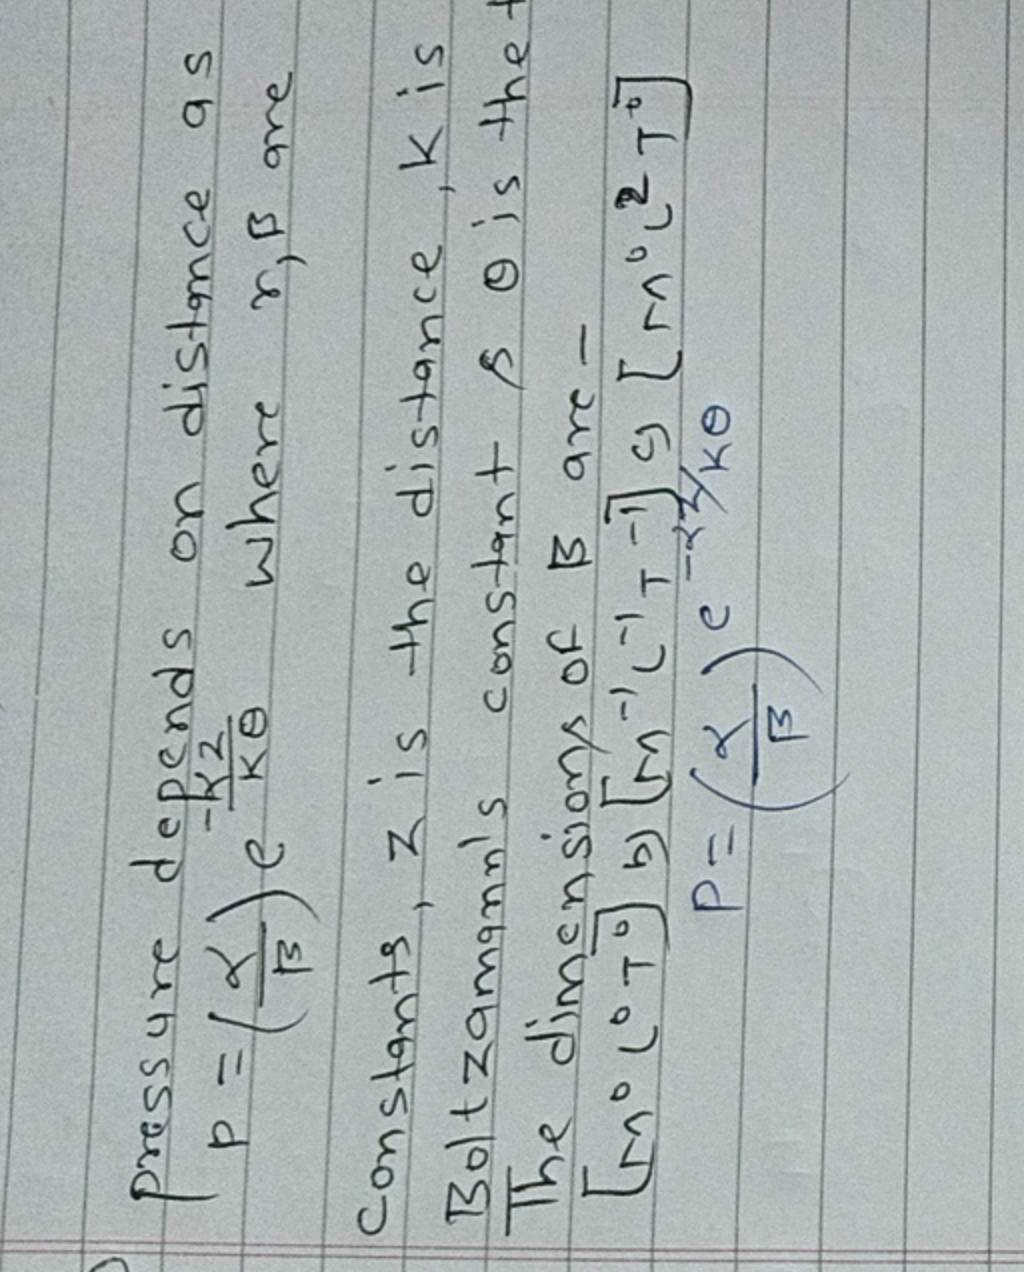 pressure depends on distance as
P = (α/β) e^(-αz/Kθ) where α, β are
constants, z is the distance, K is
Boltzamann's constant & θ is the
The dimensions of β are –
[M⁰L⁰T⁰] b) [M⁻¹L⁻¹T⁻¹] c) [M⁰L²T⁰]
P = (α/β) e^(-αz/Kθ)